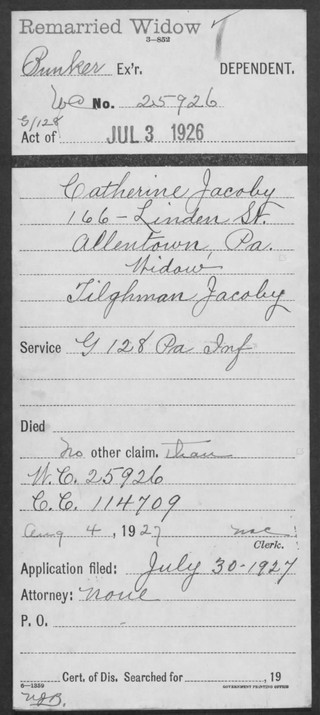 Remarried Widow
3-852
Bunker Ex'r. DEPENDENT.
WC No. 25926
G/128
Act of JUL 3 1926
Catherine Jacoby
166 - Linden St.
Allentown, Pa.
Widow
Tilghman Jacoby
Service G 128 Pa Inf
Died
No other claim. than
W.C. 25926
C.C. 114709
Aug 4, 1927
Clerk.
Application filed: July 30-1927
Attorney: None
P. O.
Cert. of Dis. Searched for , 19
6-1359 GOVERNMENT PRINTING OFFICE